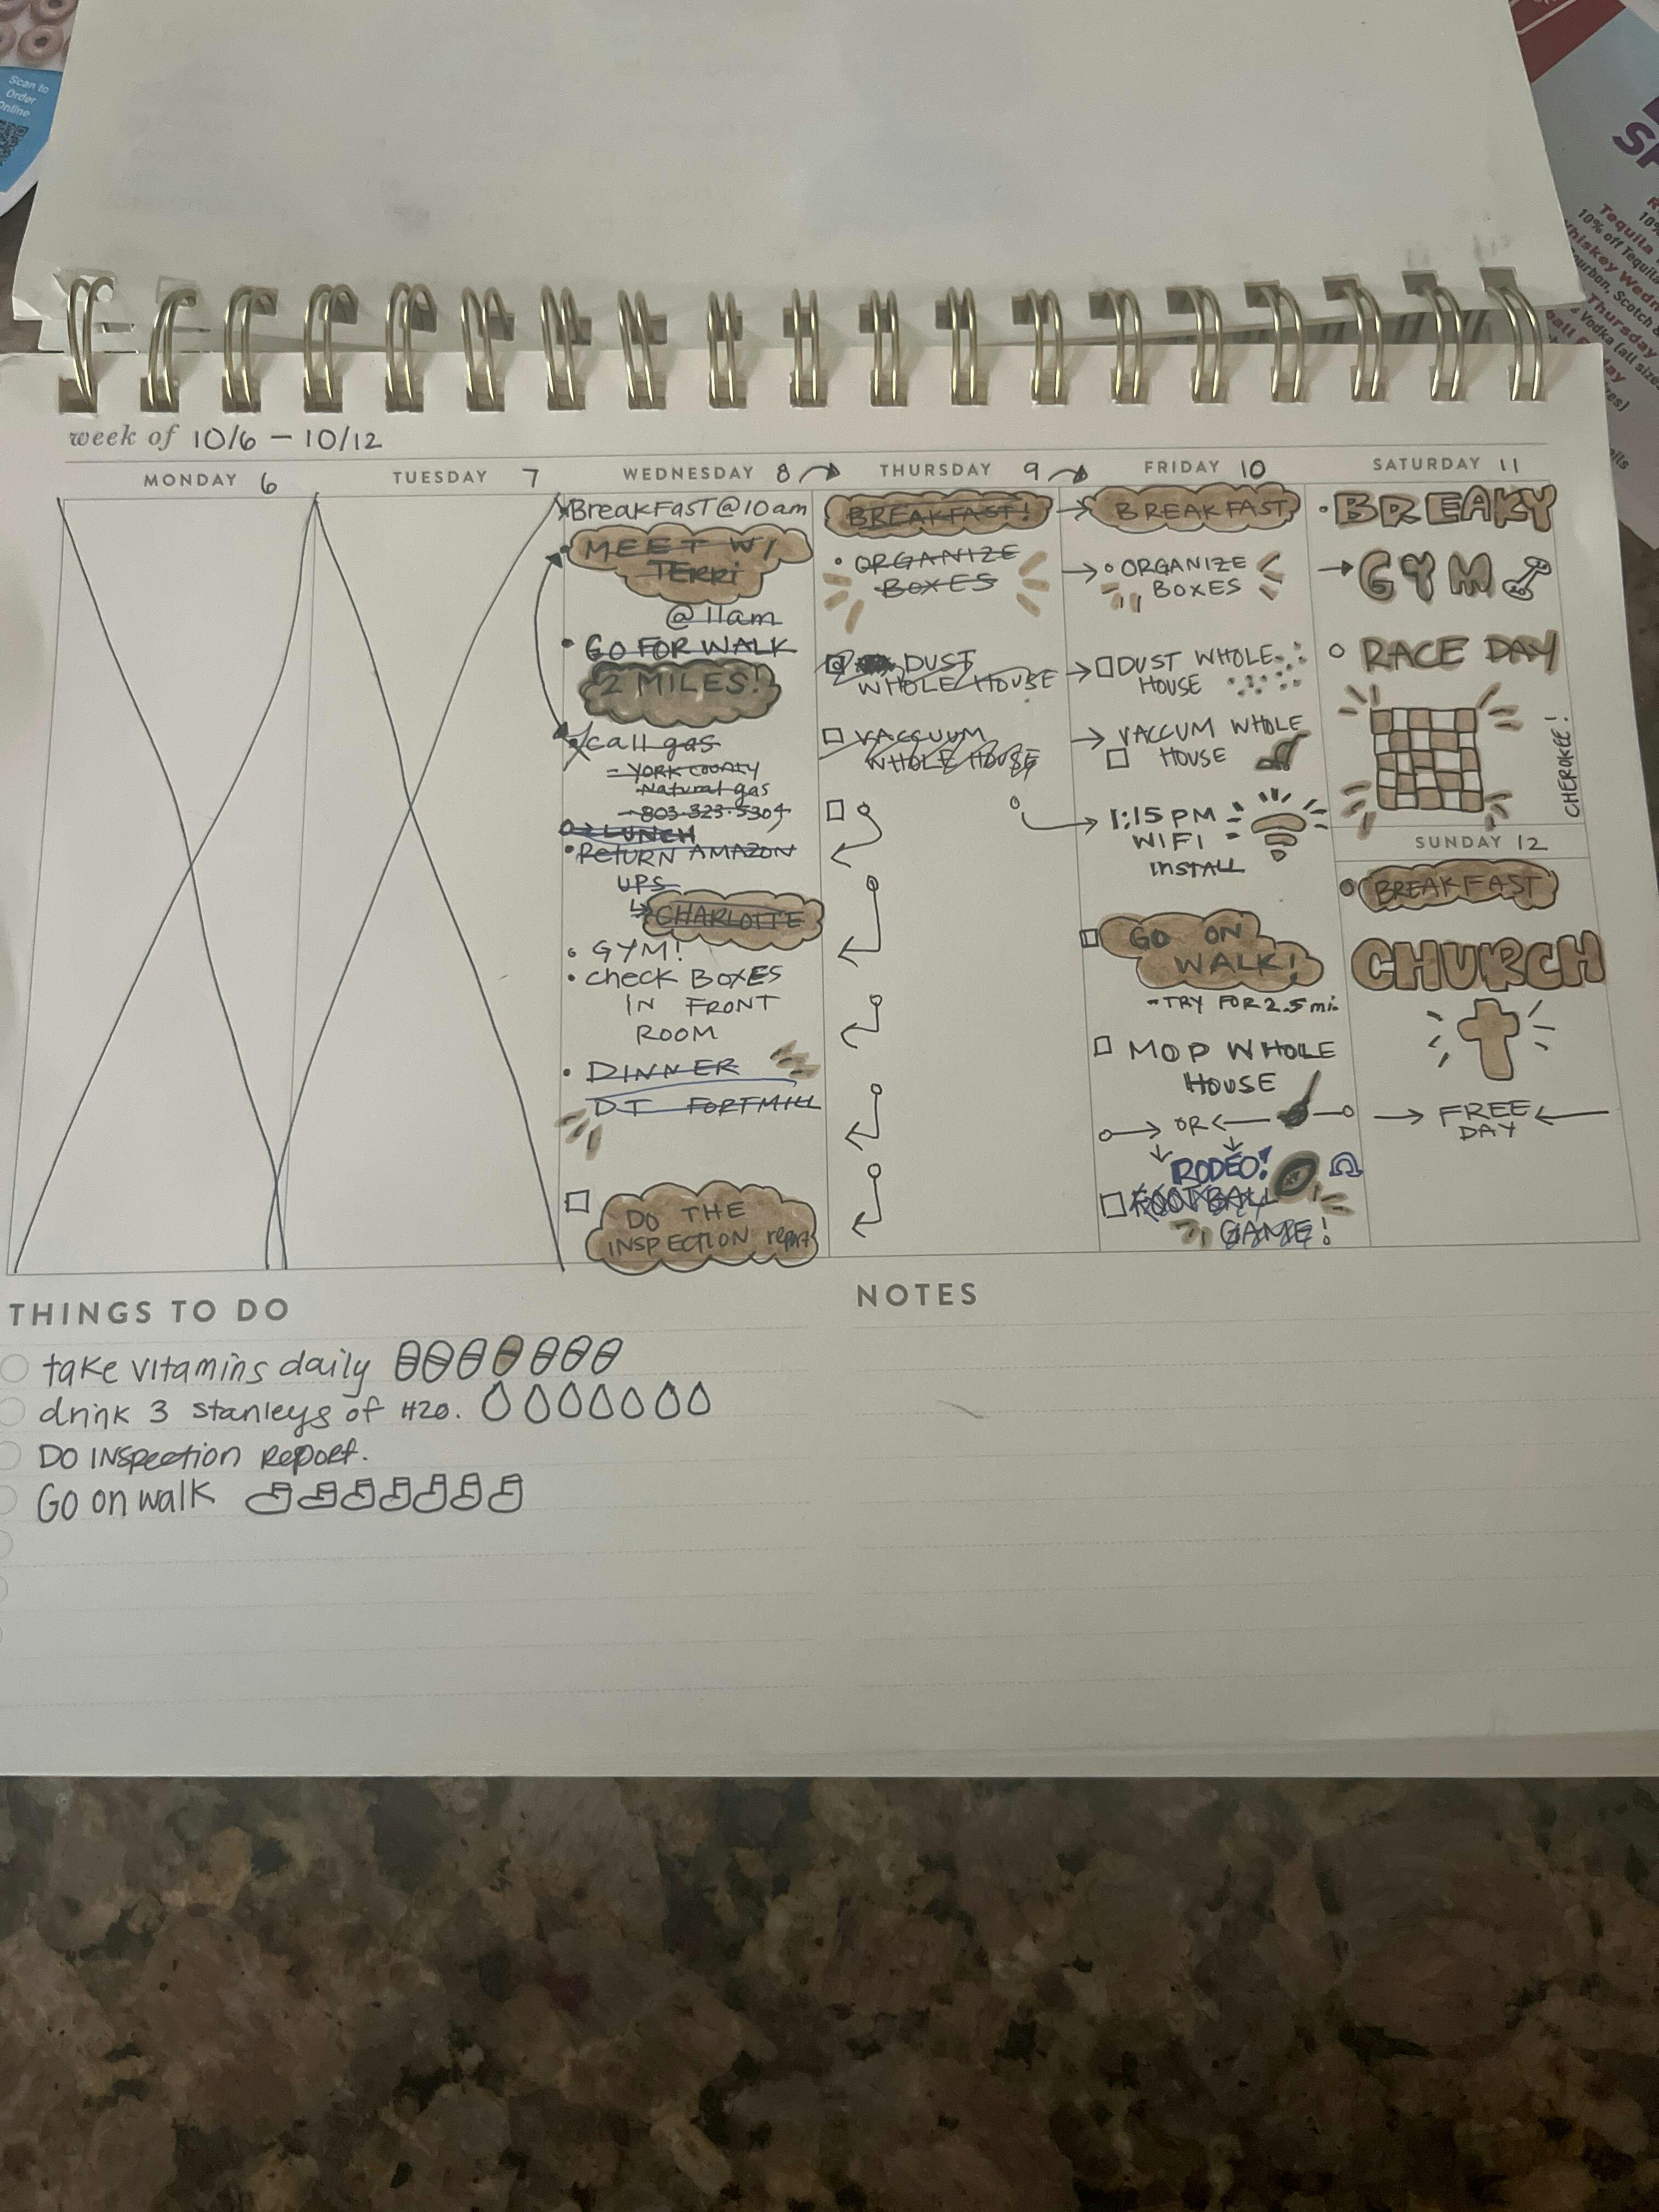 Scan to
Order
Online
SP
Tequila
10% off Tequila
Whiskey Wedn
ourbon, Scotch &
Thursday
Vodka (all size
week of 10/6 - 10/12
MONDAY 6
TUESDAY 7
WEDNESDAY 8
THURSDAY 9
FRIDAY 10
SATURDAY 11
BreakFast@10am
MEET W/
TERRi
@ 11am
GO FOR WALK
2 MILES!
call gas
- YORK COUNTY
Natural gas
- 803-323-5304
LUNCH
Return AMAZON
UPS
CHARLOTTE
GYM!
check BOXES
IN FRONT
ROOM
DINNER
DT FORTMILL
DO THE
INSPECTION report
BREAKFAST!
ORGANIZE
BOXES
DUST
WHOLE HOUSE
VACCUUM
WHOLE HOUSE
BREAKFAST
ORGANIZE
BOXES
DUST WHOLE
HOUSE
VACCUM WHOLE
HOUSE
1:15 PM
WIFI
INSTALL
GO ON
WALK!
- TRY FOR 2.5 mi.
MOP WHOLE
HOUSE
OR
RODEO!
FOOTBALL
GAME!
BREAKY
GYM
RACE DAY
CHEROKEE!
SUNDAY 12
BREAKFAST
CHURCH
FREE
DAY
THINGS TO DO
take vitamins daily
drink 3 stanleys of H2O.
DO INSpection Report.
Go on walk
NOTES